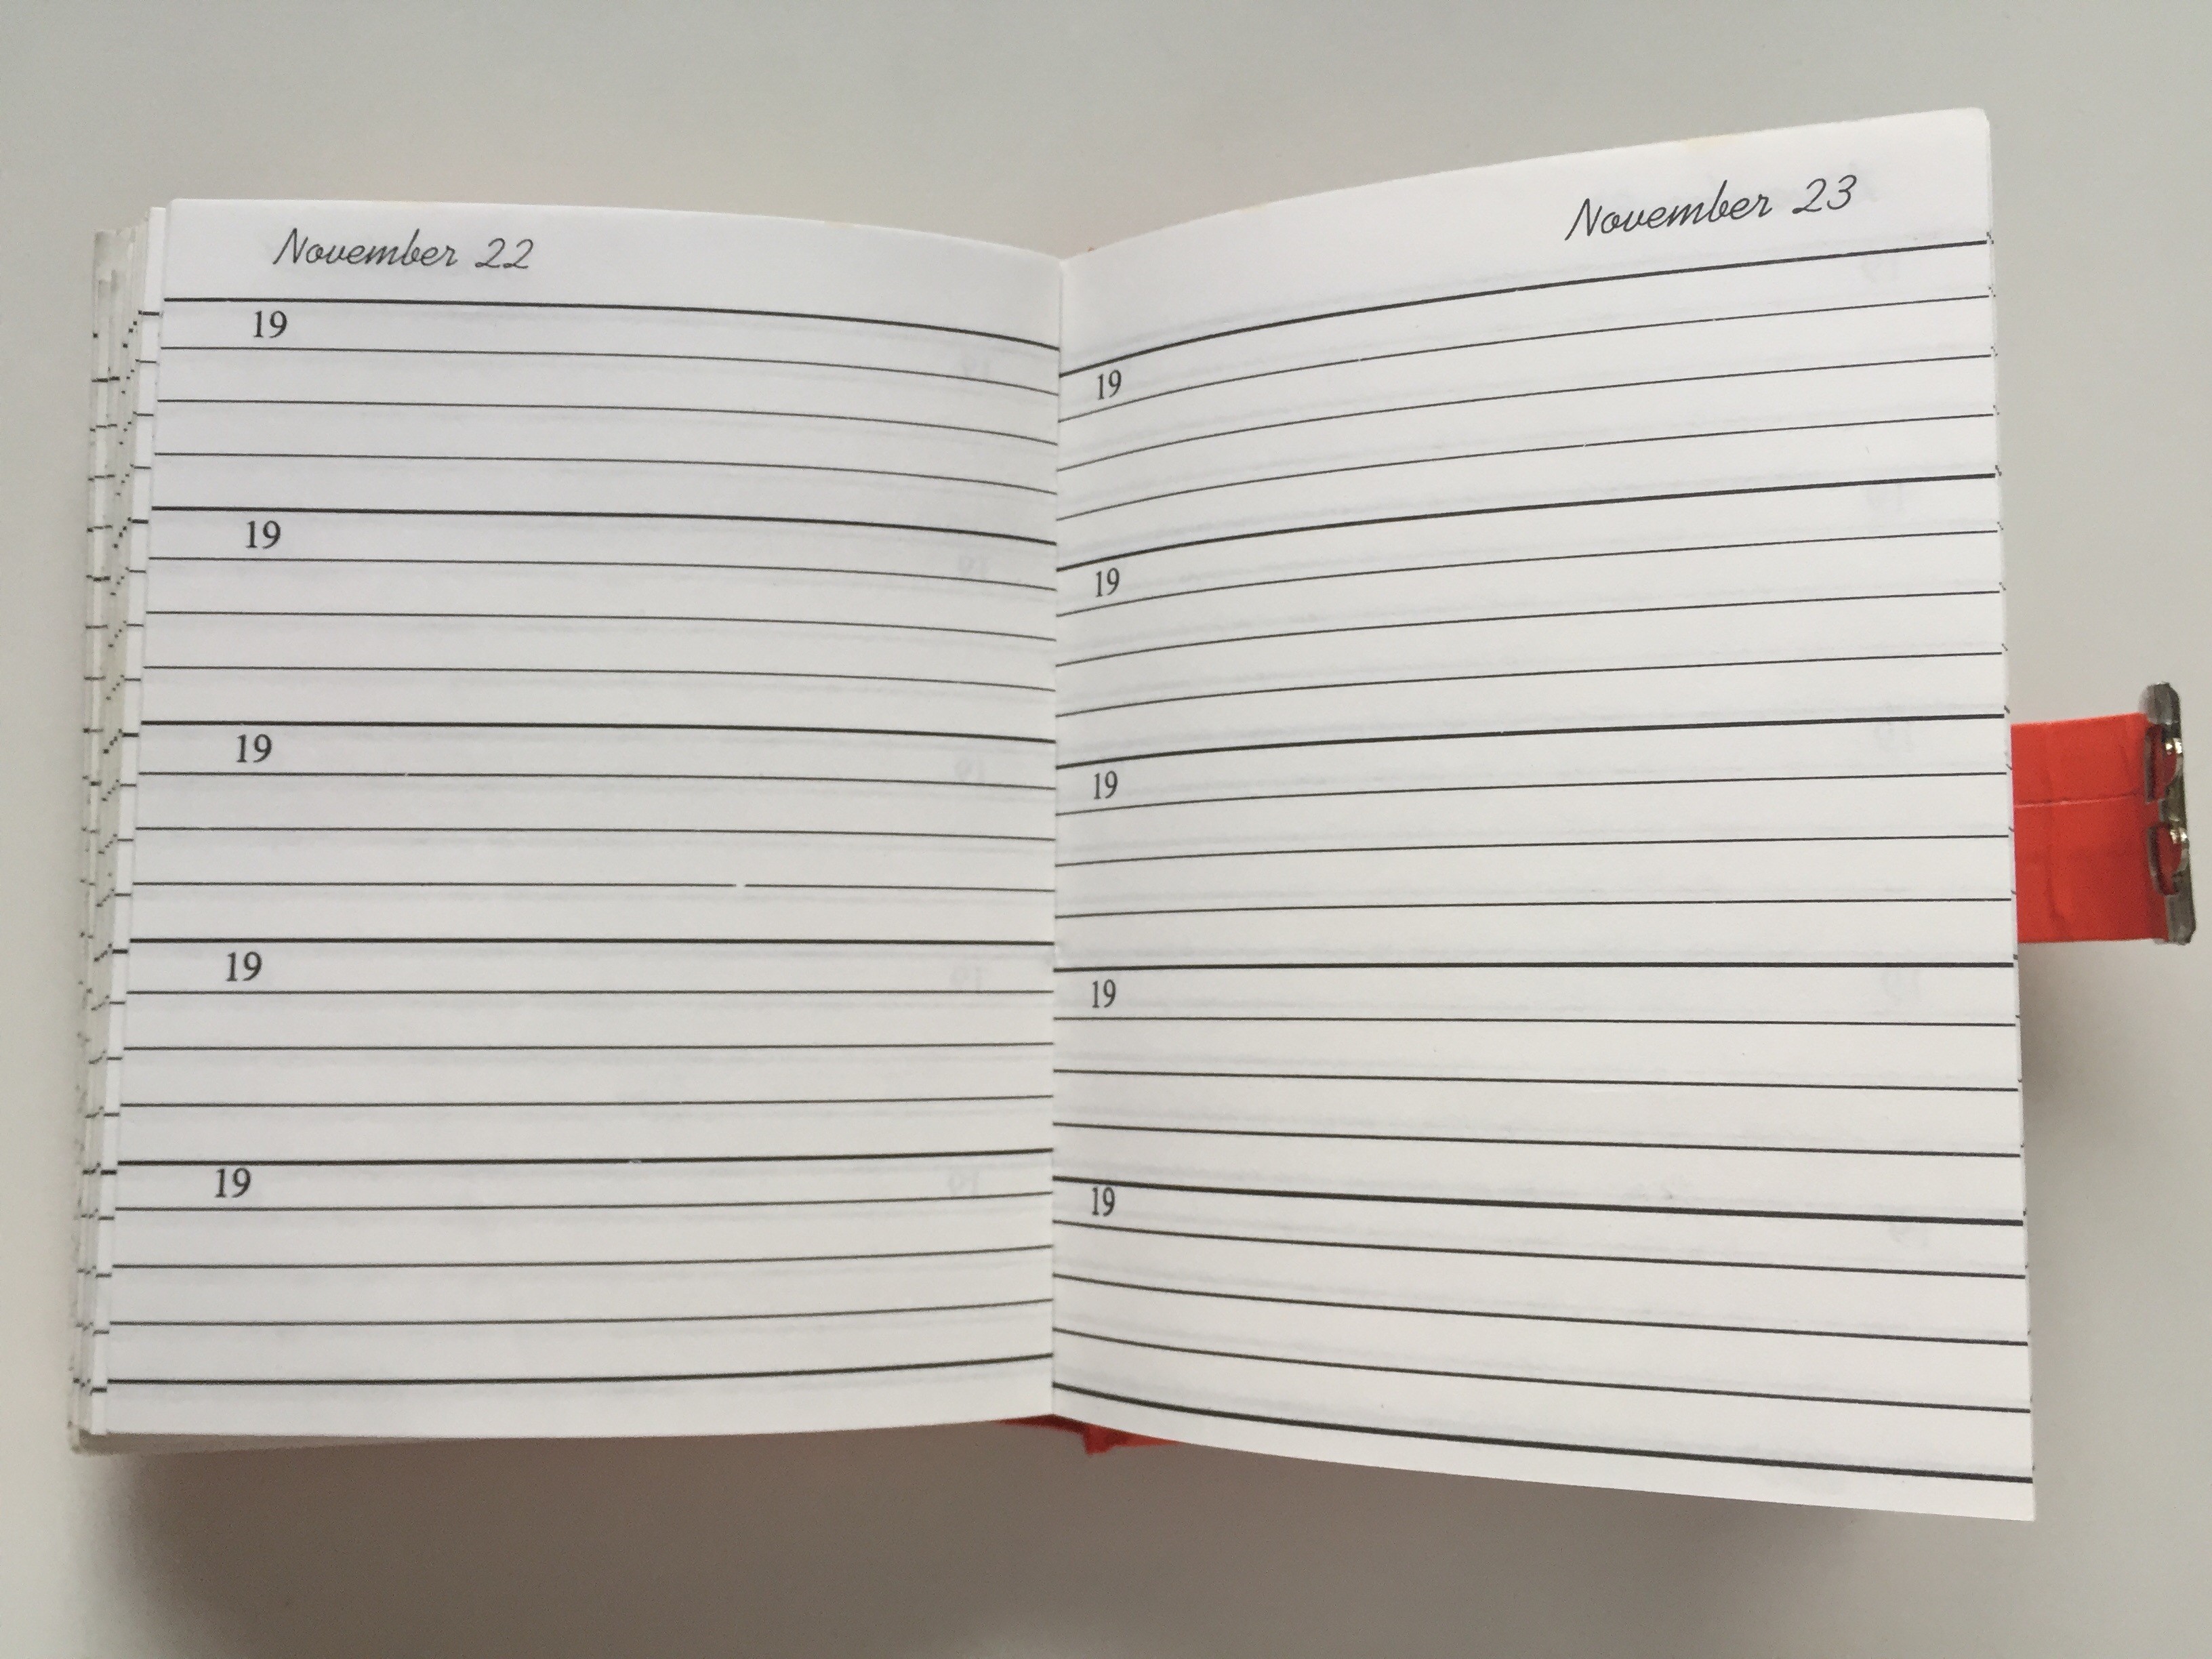 November 22
19
19
19
19
19
November 23
19
19
19
19
19